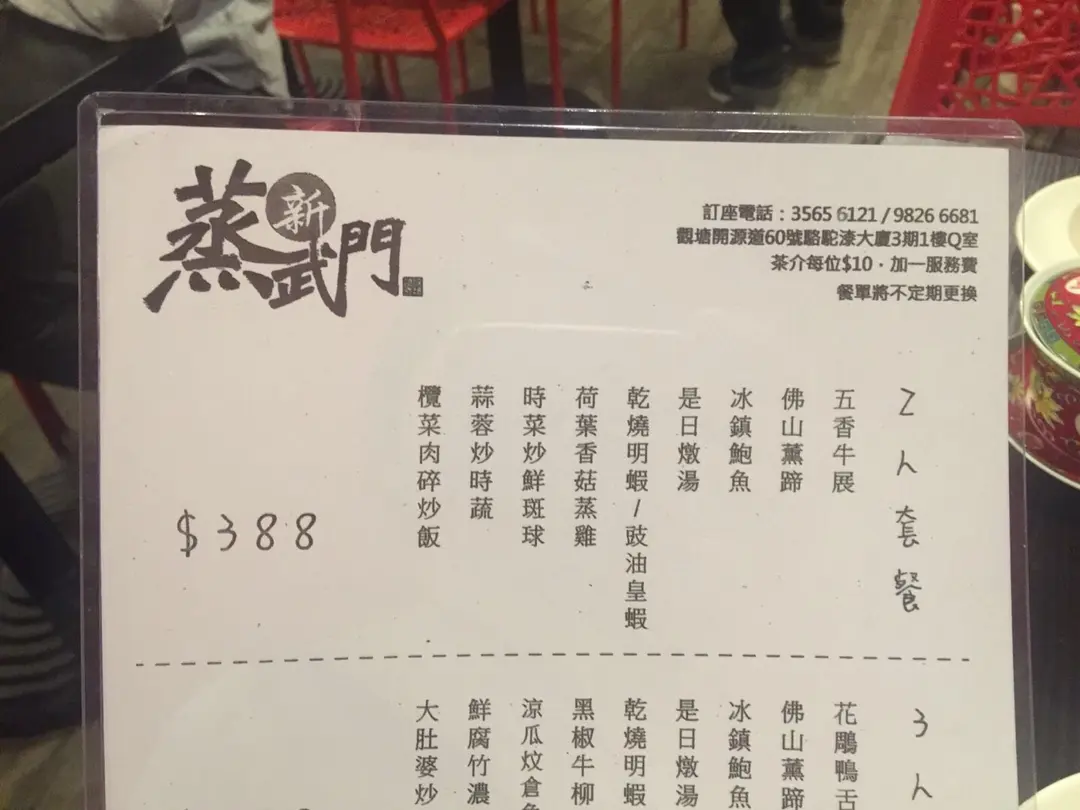 新
蒸武門
訂座電話：3565 6121 / 9826 6681
觀塘開源道60號駱駝漆大廈3期1樓Q室
茶介每位$10．加一服務費
餐單將不定期更換
2人套餐
五香牛展
佛山薰蹄
冰鎮鮑魚
是日燉湯
乾燒明蝦/豉油皇蝦
荷葉香菇蒸雞
時菜炒鮮斑球
蒜蓉炒時蔬
欖菜肉碎炒飯
$388
3人
花鵰鴨舌
佛山薰蹄
冰鎮鮑魚
是日燉湯
乾燒明蝦
黑椒牛柳
涼瓜炆倉魚
鮮腐竹濃
大肚婆炒